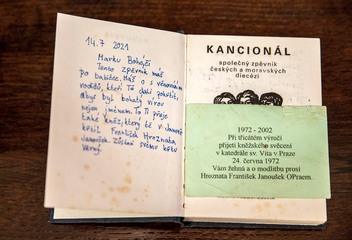 14.7 2021
Marku Boháči
Tento zpěvník máš
po babičce. Máš o s věnováním
rodičů, kteří Ti dali pokřtít,
abys byl bohatý vírou
nejen jménem. To Ti přeje
také kněz, který tě v Janově
křtil František Hroznata
Janoušek. Zůstaň svému křtu
věrný.
KANCIONÁL
společný zpěvník
českých a moravských
diecézí
1972 - 2002
Při třicátém výročí
přijetí kněžského svěcení
v katedrále sv. Víta v Praze
24. června 1972
Vám žehná a o modlitbu prosí
Hroznata František Janoušek OPraem.